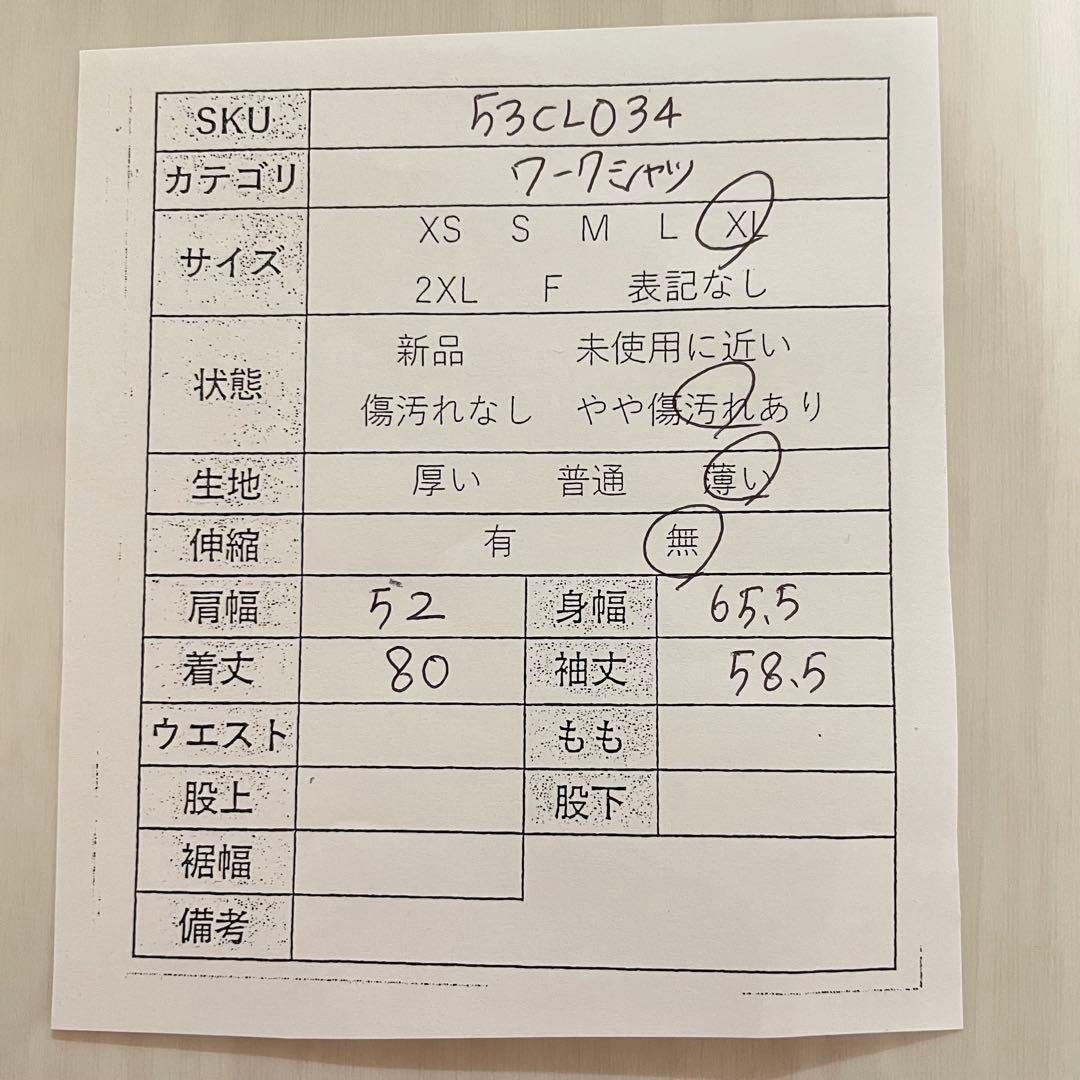 SKU 53CL034
カテゴリ ワークシャツ
サイズ XS S M L XL
2XL F 表記なし
状態 新品 未使用に近い
傷汚れなし やや傷汚れあり
生地 厚い 普通 薄い
伸縮 有 無
肩幅 52 身幅 65.5
着丈 80 袖丈 58.5
ウエスト もも
股上 股下
裾幅
備考